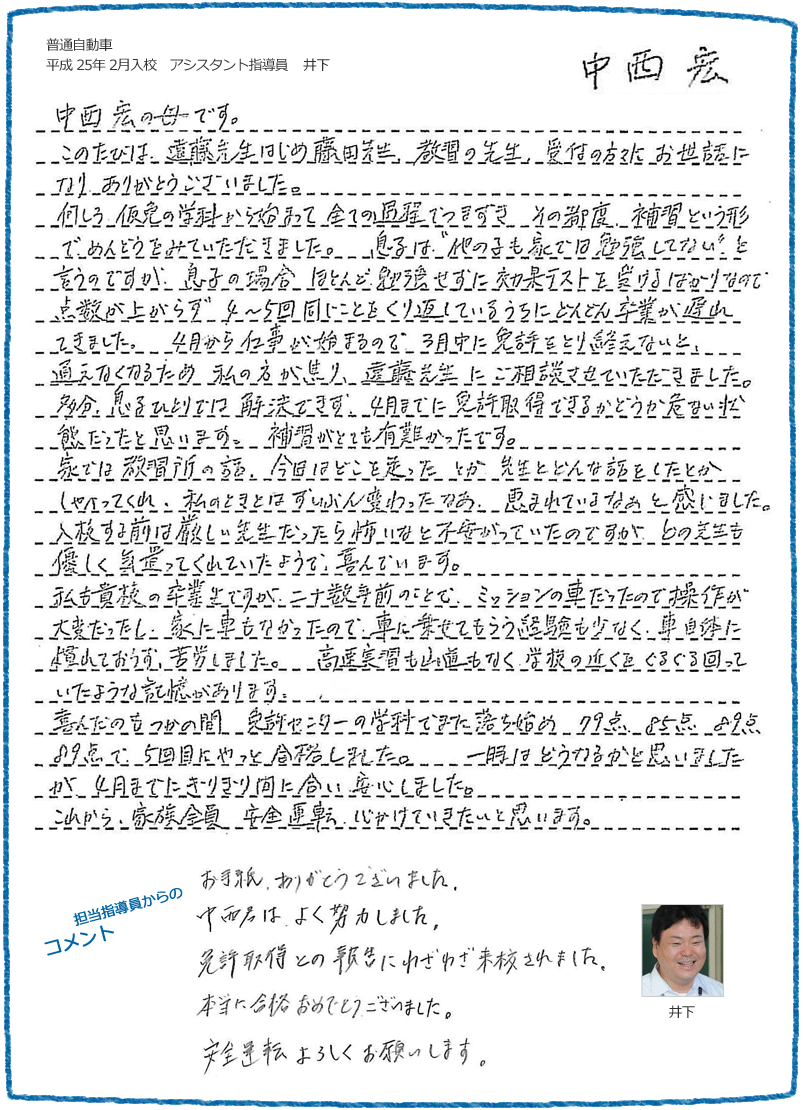 普通自動車
平成25年2月入校　アシスタント指導員　井下
中西 宏
中西 宏の母です。
このたびは、遠藤先生はじめ藤田先生、教習の先生、受付の方々にお世話に
なり、ありがとうございました。
何しろ、仮免の学科から始まって全ての過程でつまずき、その都度、補習という形
で、めんどうをみていただきました。 息子は“他の子も家では勉強してない”と
言うのですが、息子の場合 ほとんど勉強せずに効果テストを受けるばかりなので
点数が上がらず 4～5回同じことをくり返しているうちにどんどん卒業が遅れ
てきました。 4月から仕事が始まるので、3月中に免許をとり終えないと、
通えなくなるため 私の方が焦り、遠藤先生にご相談させていただきました。
多分、息子ひとりでは解決できず、4月までに免許取得できるかどうか危ない状
態だったと思います。 補習がとても有難かったです。
家では教習所の話、今日はどこを走った とか 先生とどんな話をしたとか
しゃべってくれ、私のときとはずいぶん変わったなあ、恵まれているなぁと感じました。
入校する前は厳しい先生だったら怖いなと不安がっていたのですが、どの先生も
優しく気遣ってくれていたようで、喜んでいます。
私も貴校の卒業生ですが、二十数年前のことで、ミッションの車だったので操作が
大変だったし、家に車もなかったので、車に乗せてもらう経験も少なく、車自体に
慣れておらず、苦労しました。 高速実習も山道もなく、学校の近くをぐるぐる回って
いたような記憶があります。
喜んだのもつかの間 免許センターの学科でまた落ち始め 79点 85点 89点
89点で、5回目にやっと合格しました。 一時はどうなるかと思いました
が、4月までにぎりぎり間に合い 安心しました。
これから、家族全員 安全運転、心がけていきたいと思います。
担当指導員からの
コメント
お手紙、ありがとうございました。
中西君は、よく努力しました。
免許取得との報告にわざわざ来校されました。
本当に合格おめでとうございました。
安全運転よろしくお願いします。
井下